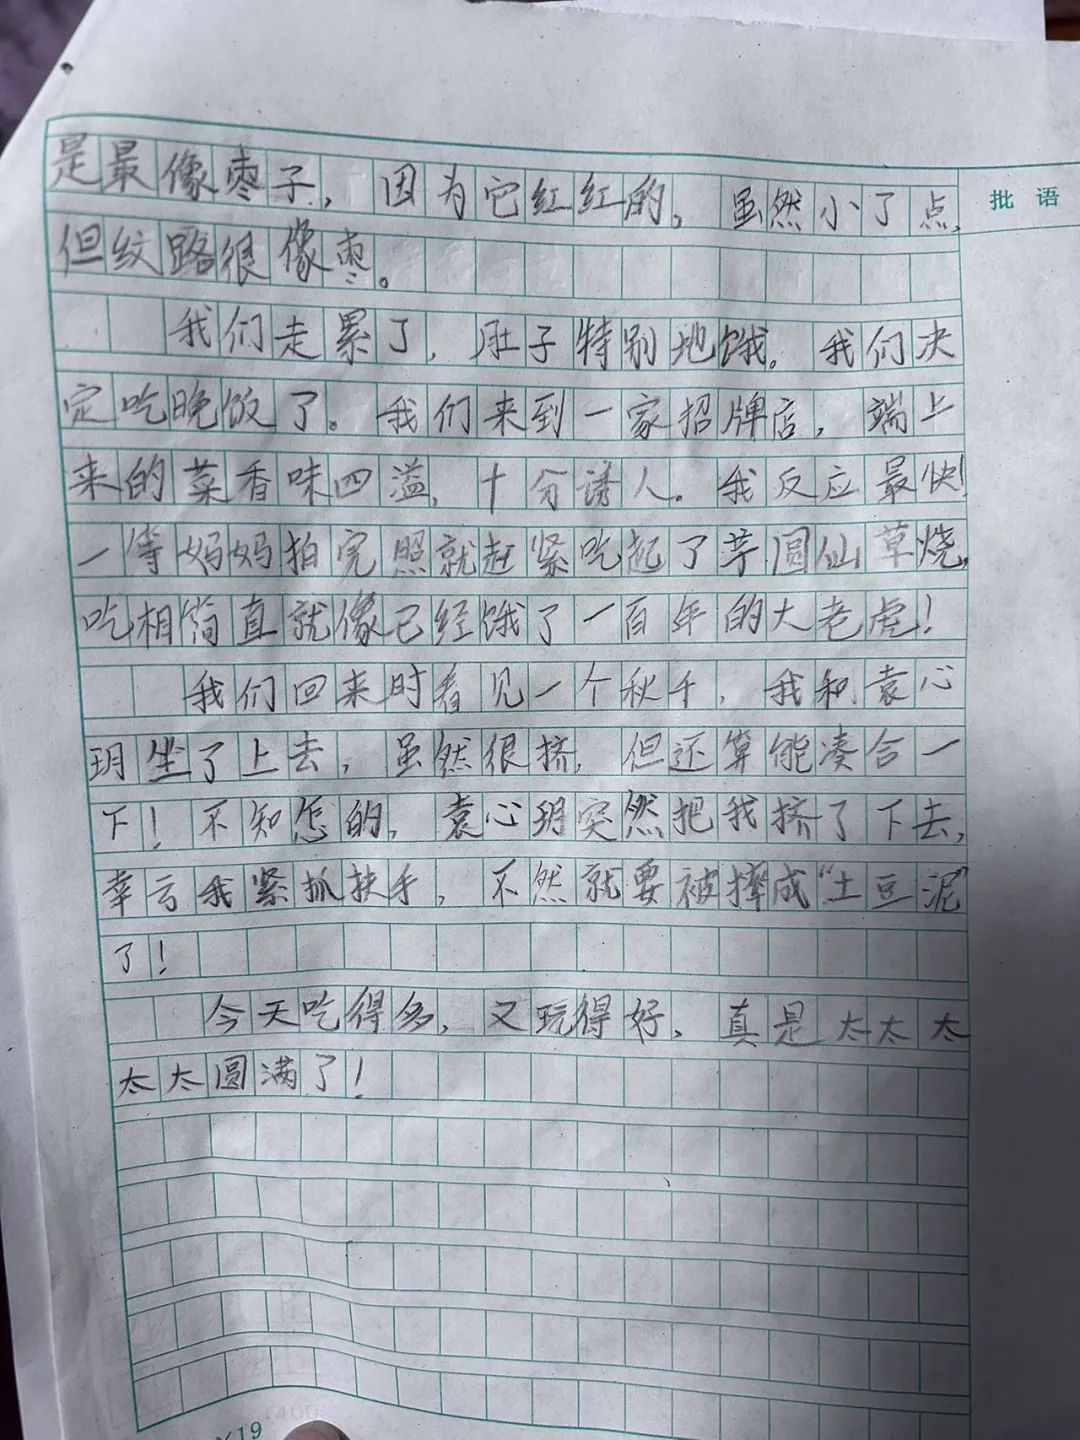 是最像枣子，因为它红红的，虽然小了点，
批语
但纹路很像枣。
我们走累了，肚子特别地饿。我们决
定吃晚饭了。我们来到一家招牌店，端上
来的菜香味四溢，十分诱人。我反应最快！
一等妈妈拍完照就赶紧吃起了芋圆仙草烧，
吃相简直就像已经饿了一百年的大老虎！
我们回来时看见一个秋千，我和袁心
玥坐了上去，虽然很挤，但还算能凑合一
下！不知怎的，袁心玥突然把我挤了下去，
幸云我紧抓扶手，不然就要被摔成“土豆泥”
了！
今天吃得多，又玩得好，真是太太太
太太圆满了！
×19